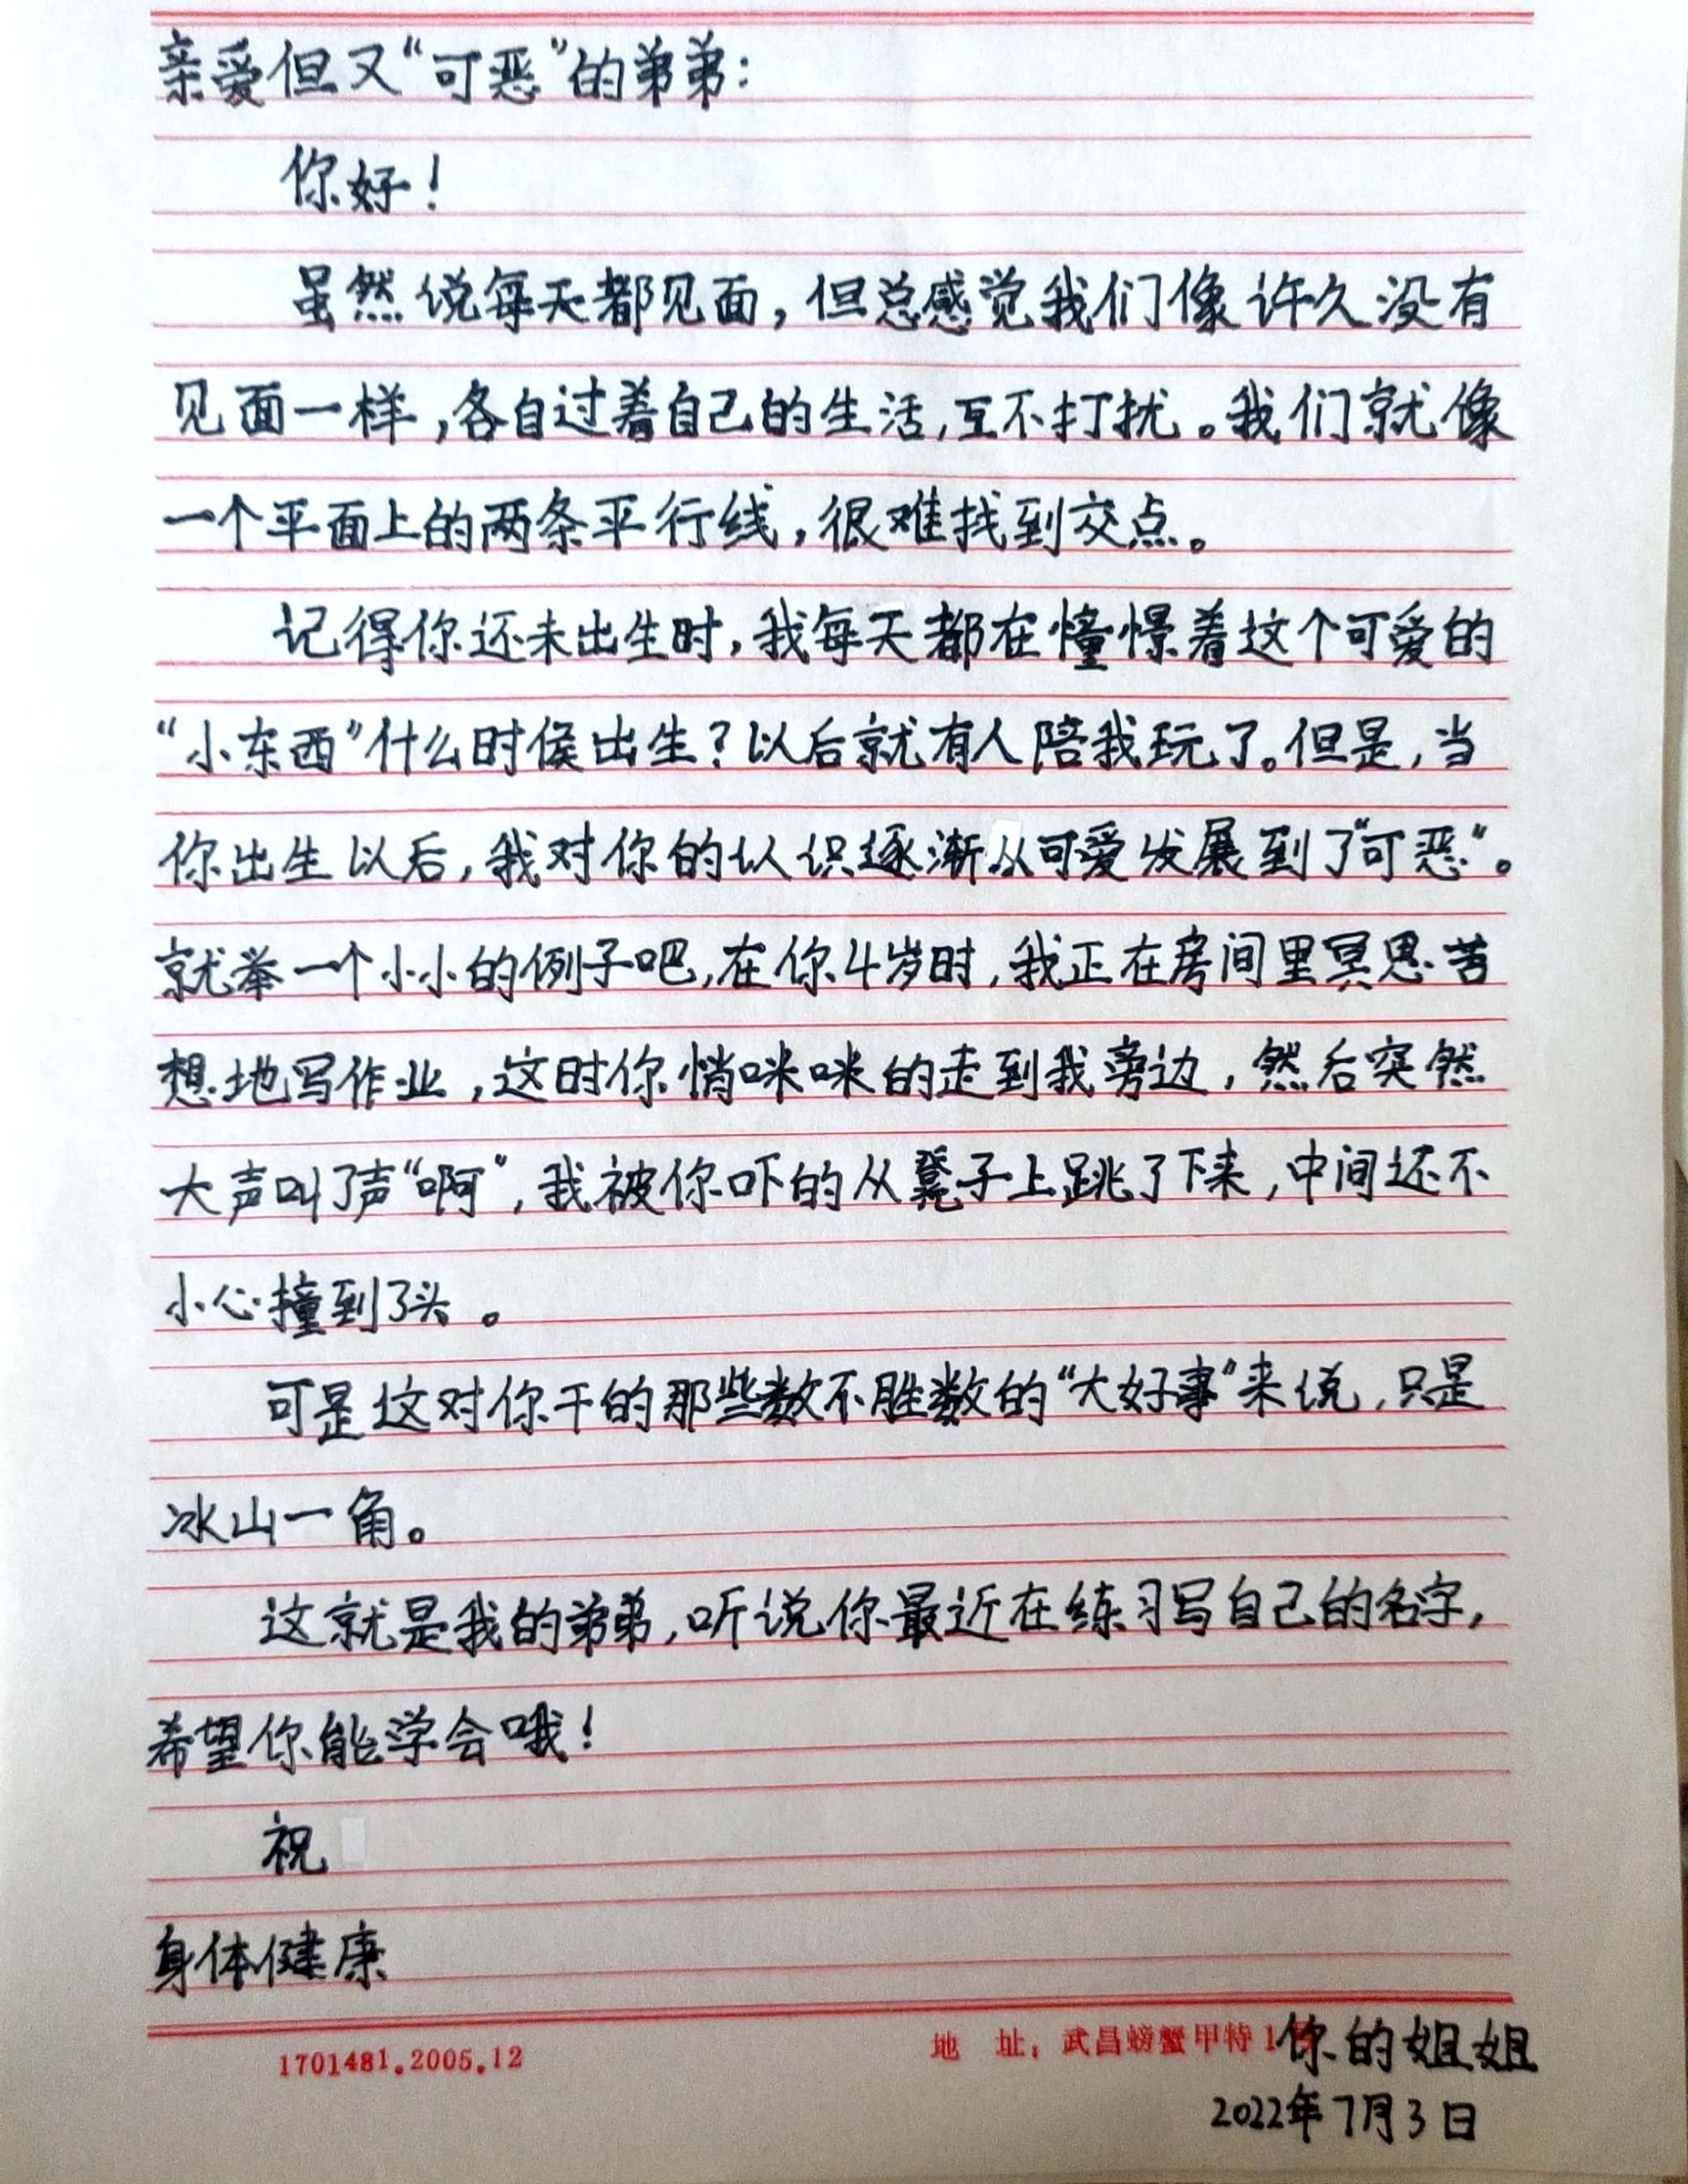 亲爱但又“可恶”的弟弟：
你好！
虽然说每天都见面，但总感觉我们像许久没有
见面一样，各自过着自己的生活，互不打扰。我们就像
一个平面上的两条平行线，很难找到交点。
记得你还未出生时，我每天都在憧憬着这个可爱的
“小东西”什么时侯出生？以后就有人陪我玩了。但是，当
你出生以后，我对你的认识逐渐从可爱发展到了“可恶”。
就举一个小小的例子吧，在你4岁时，我正在房间里冥思苦
想地写作业，这时你悄咪咪的走到我旁边，然后突然
大声叫了声“啊”，我被你吓的从凳子上跳了下来，中间还不
小心撞到了头。
可是这对你干的那些数不胜数的“大好事”来说，只是
冰山一角。
这就是我的弟弟，听说你最近在练习写自己的名字，
希望你能学会哦！
祝
身体健康
1701481.2005.12 地 址：武昌螃蟹甲特1
你的姐姐
2022年7月3日